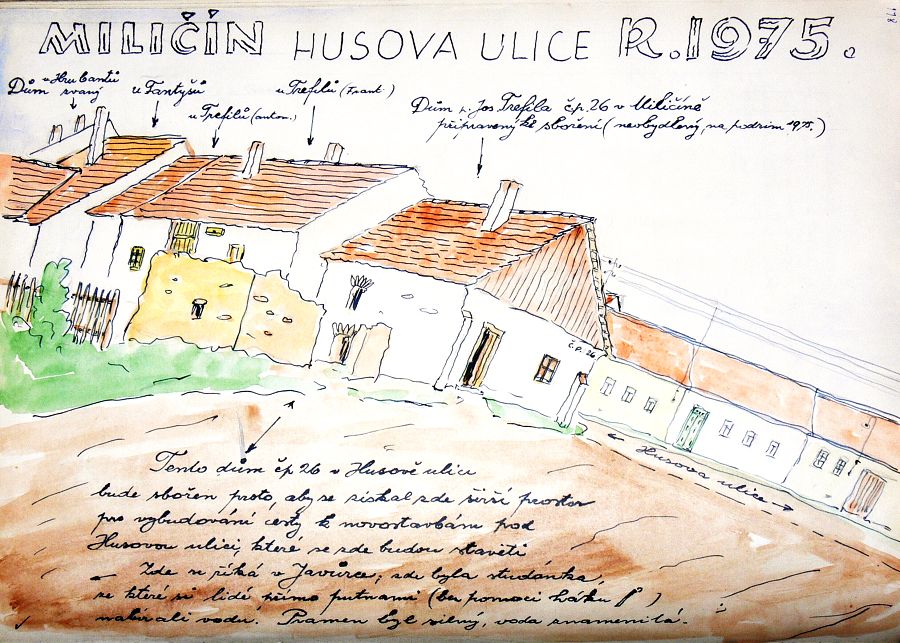 MILIČÍN HUSOVA ULICE R.1975.
178
u Hrubantů
Dům zvaný
u Fantyšů
u Trefilů (anton.)
u Trefilů (Frant.)
Dům p. Jos Trefila č.p. 26 v Miličíně
připravený ke sboření (neobydlený, na podzim 1975.)
č.p. 26
Husova ulice
Tento dům čp. 26 v Husově ulici
bude sbořen proto, aby se získal zde širší prostor
pro vybudování cesty k novostavbám pod
Husovou ulicí, které se zde budou stavěti
Zde se říká v Javůrce; zde byla studánka,
ze které si lidé přímo putnami (bez pomoci háku)
nabírali vodu. Pramen byl silný, voda znamenitá.